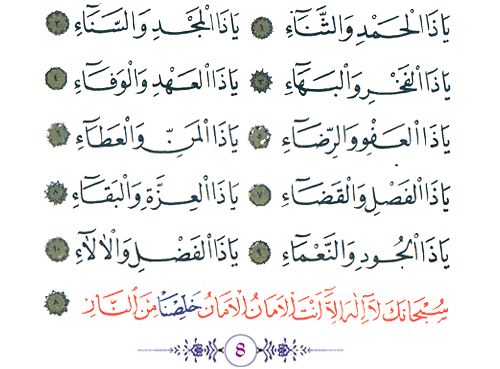 يَاذَا الْحَمْدِ وَالثَّنَاءِ ١ يَاذَا الْمَجْدِ وَالسَّنَاءِ ٢
يَاذَا الْفَخْرِ وَالْبَهَاءِ ٣ يَاذَا الْعَهْدِ وَالْوَفَاءِ ٤
يَاذَا الْعَفْوِ وَالرِّضَاءِ ٥ يَاذَا الْمَنِّ وَالْعَطَاءِ ٦
يَاذَا الْفَصْلِ وَالْقَضَاءِ ٧ يَاذَا الْعِزَّةِ وَالْبَقَاءِ ٨
يَاذَا الْجُودِ وَالنَّعْمَاءِ ٩ يَاذَا الْفَضْلِ وَالْاٰلَاءِ ١٠
سُبْحَانَكَ لَا اِلٰهَ اِلَّا اَنْتَ الْاَمَانُ الْاَمَانُ خَلِّصْنَا مِنَ النَّارِ ٨
8